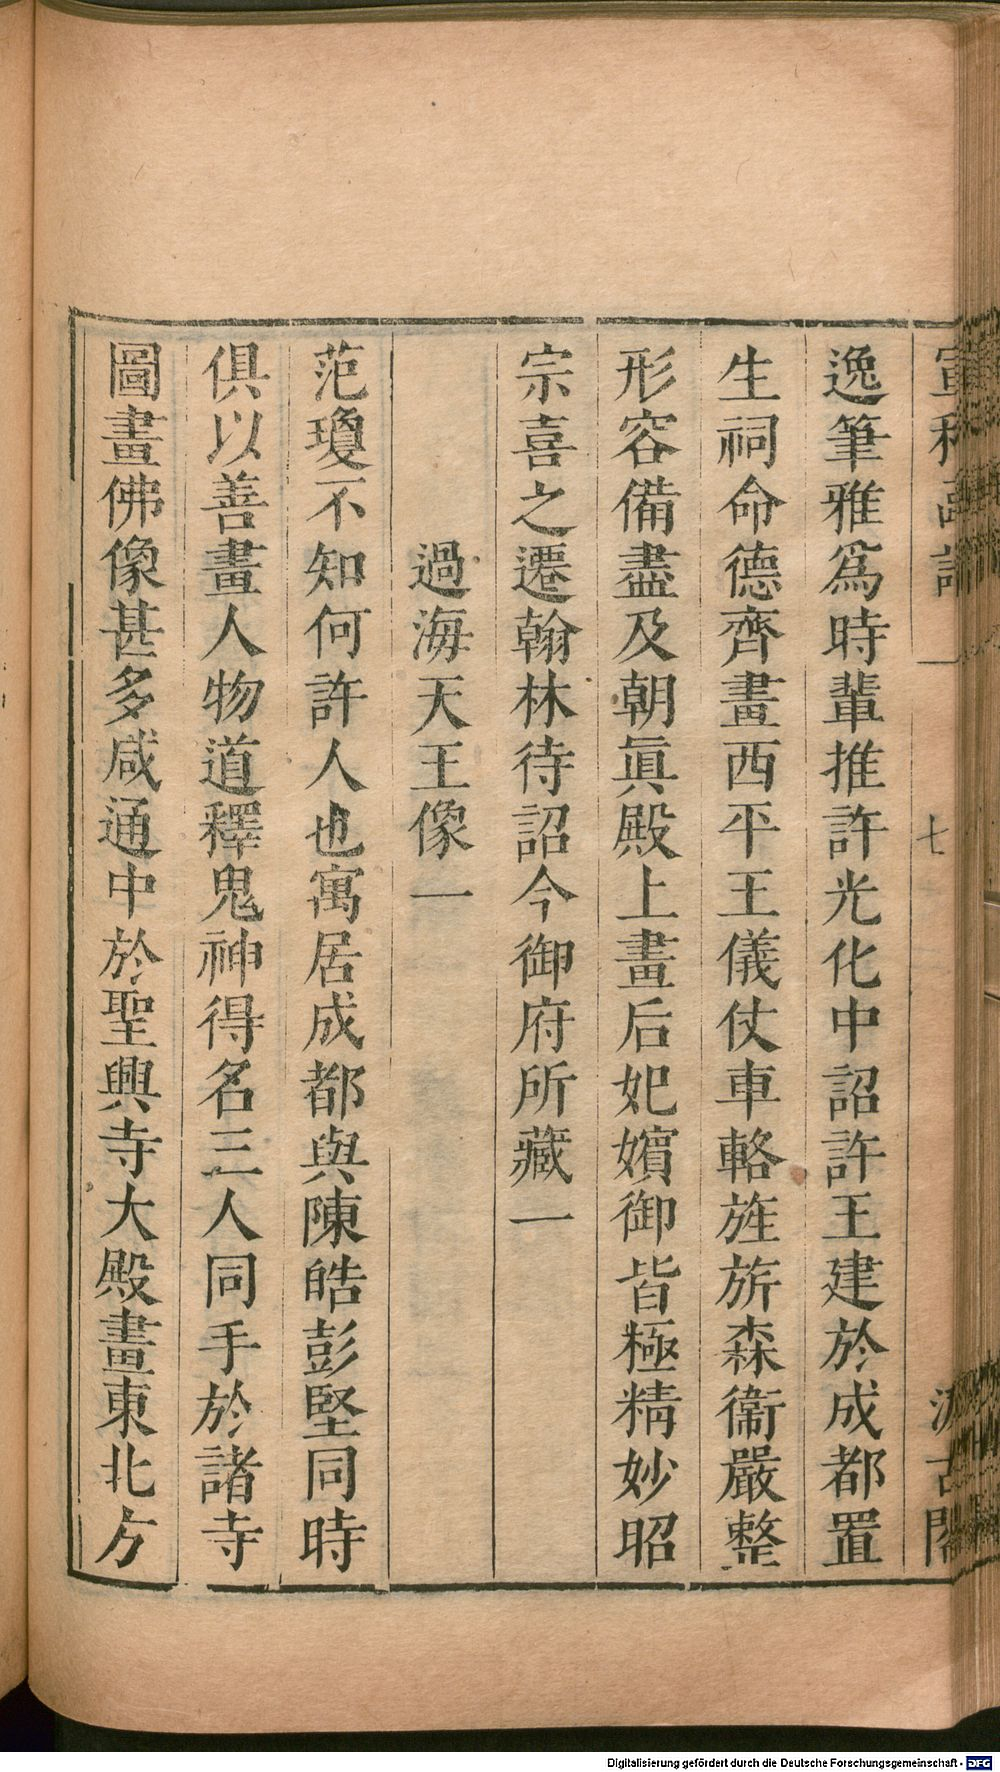 逸筆雅爲時輩推許光化中詔許王建於成都置
生祠命德齊畫西平王儀仗車輅旌旂森衞嚴整
形容備盡及朝眞殿上畫后妃嬪御皆極精妙昭
宗喜之遷翰林待詔今御府所藏一
過海天王像一
范瓊不知何許人也寓居成都與陳皓彭堅同時
俱以善畫人物道釋鬼神得名三人同手於諸寺
圖畫佛像甚多咸通中於聖興寺大殿畫東北方
七
Digitalisierung gefördert durch die Deutsche Forschungsgemeinschaft - DFG